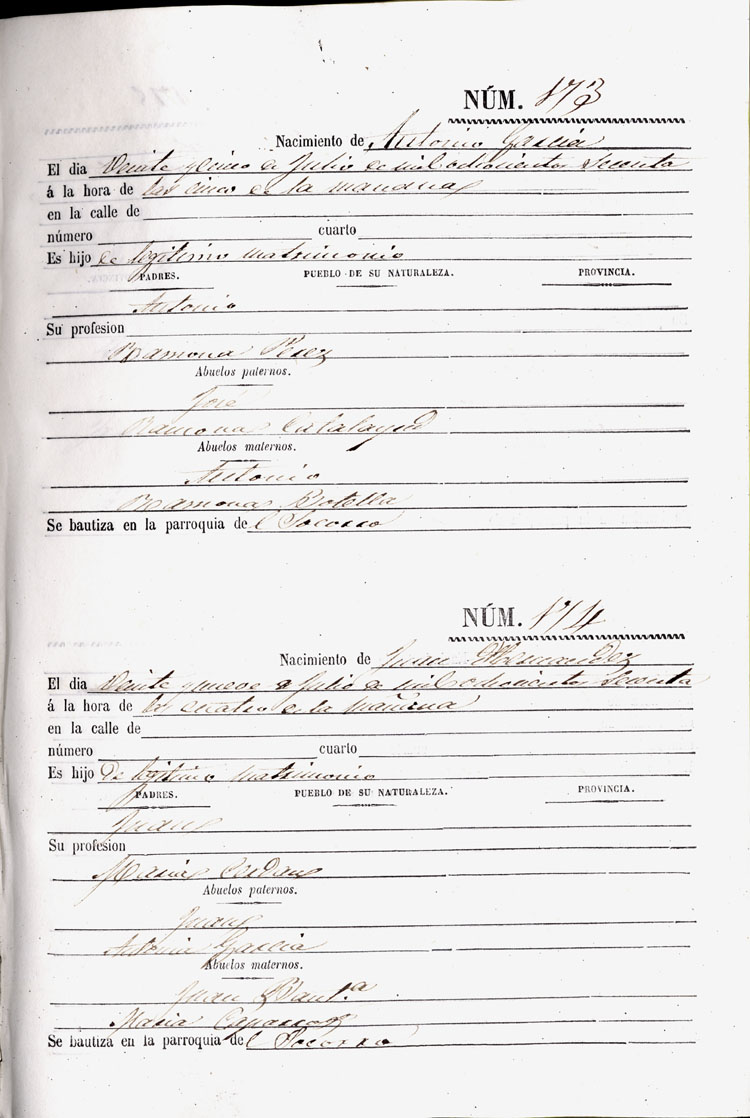 NÚM. 173
Nacimiento de Antonio Garcia
El dia Veinte y cinco de Julio de mil ochocientos Secenta
á la hora de las cinco de la mañana
en la calle de
número cuarto
Es hijo de legitimo matrimonio
PADRES. PUEBLO DE SU NATURALEZA. PROVINCIA.
Antonio
Su profesion
Ramona Perez
Abuelos paternos.
José
Ramona Calatayud
Abuelos maternos.
Antonio
Ramona Botella
Se bautiza en la parroquia del Socorro
NÚM. 174
Nacimiento de Juan Hernandez
El dia Veinte y nueve de Julio de mil ochocientos Secenta
á la hora de las cuatro de la mañana
en la calle de
número cuarto
Es hijo De legitimo matrimonio
PADRES. PUEBLO DE SU NATURALEZA. PROVINCIA.
Juan
Su profesion
Maria Cerdan
Abuelos paternos.
Juan
Antonia Garcia
Abuelos maternos.
Juan Baut.ª
Maria
Se bautiza en la parroquia del Socorro